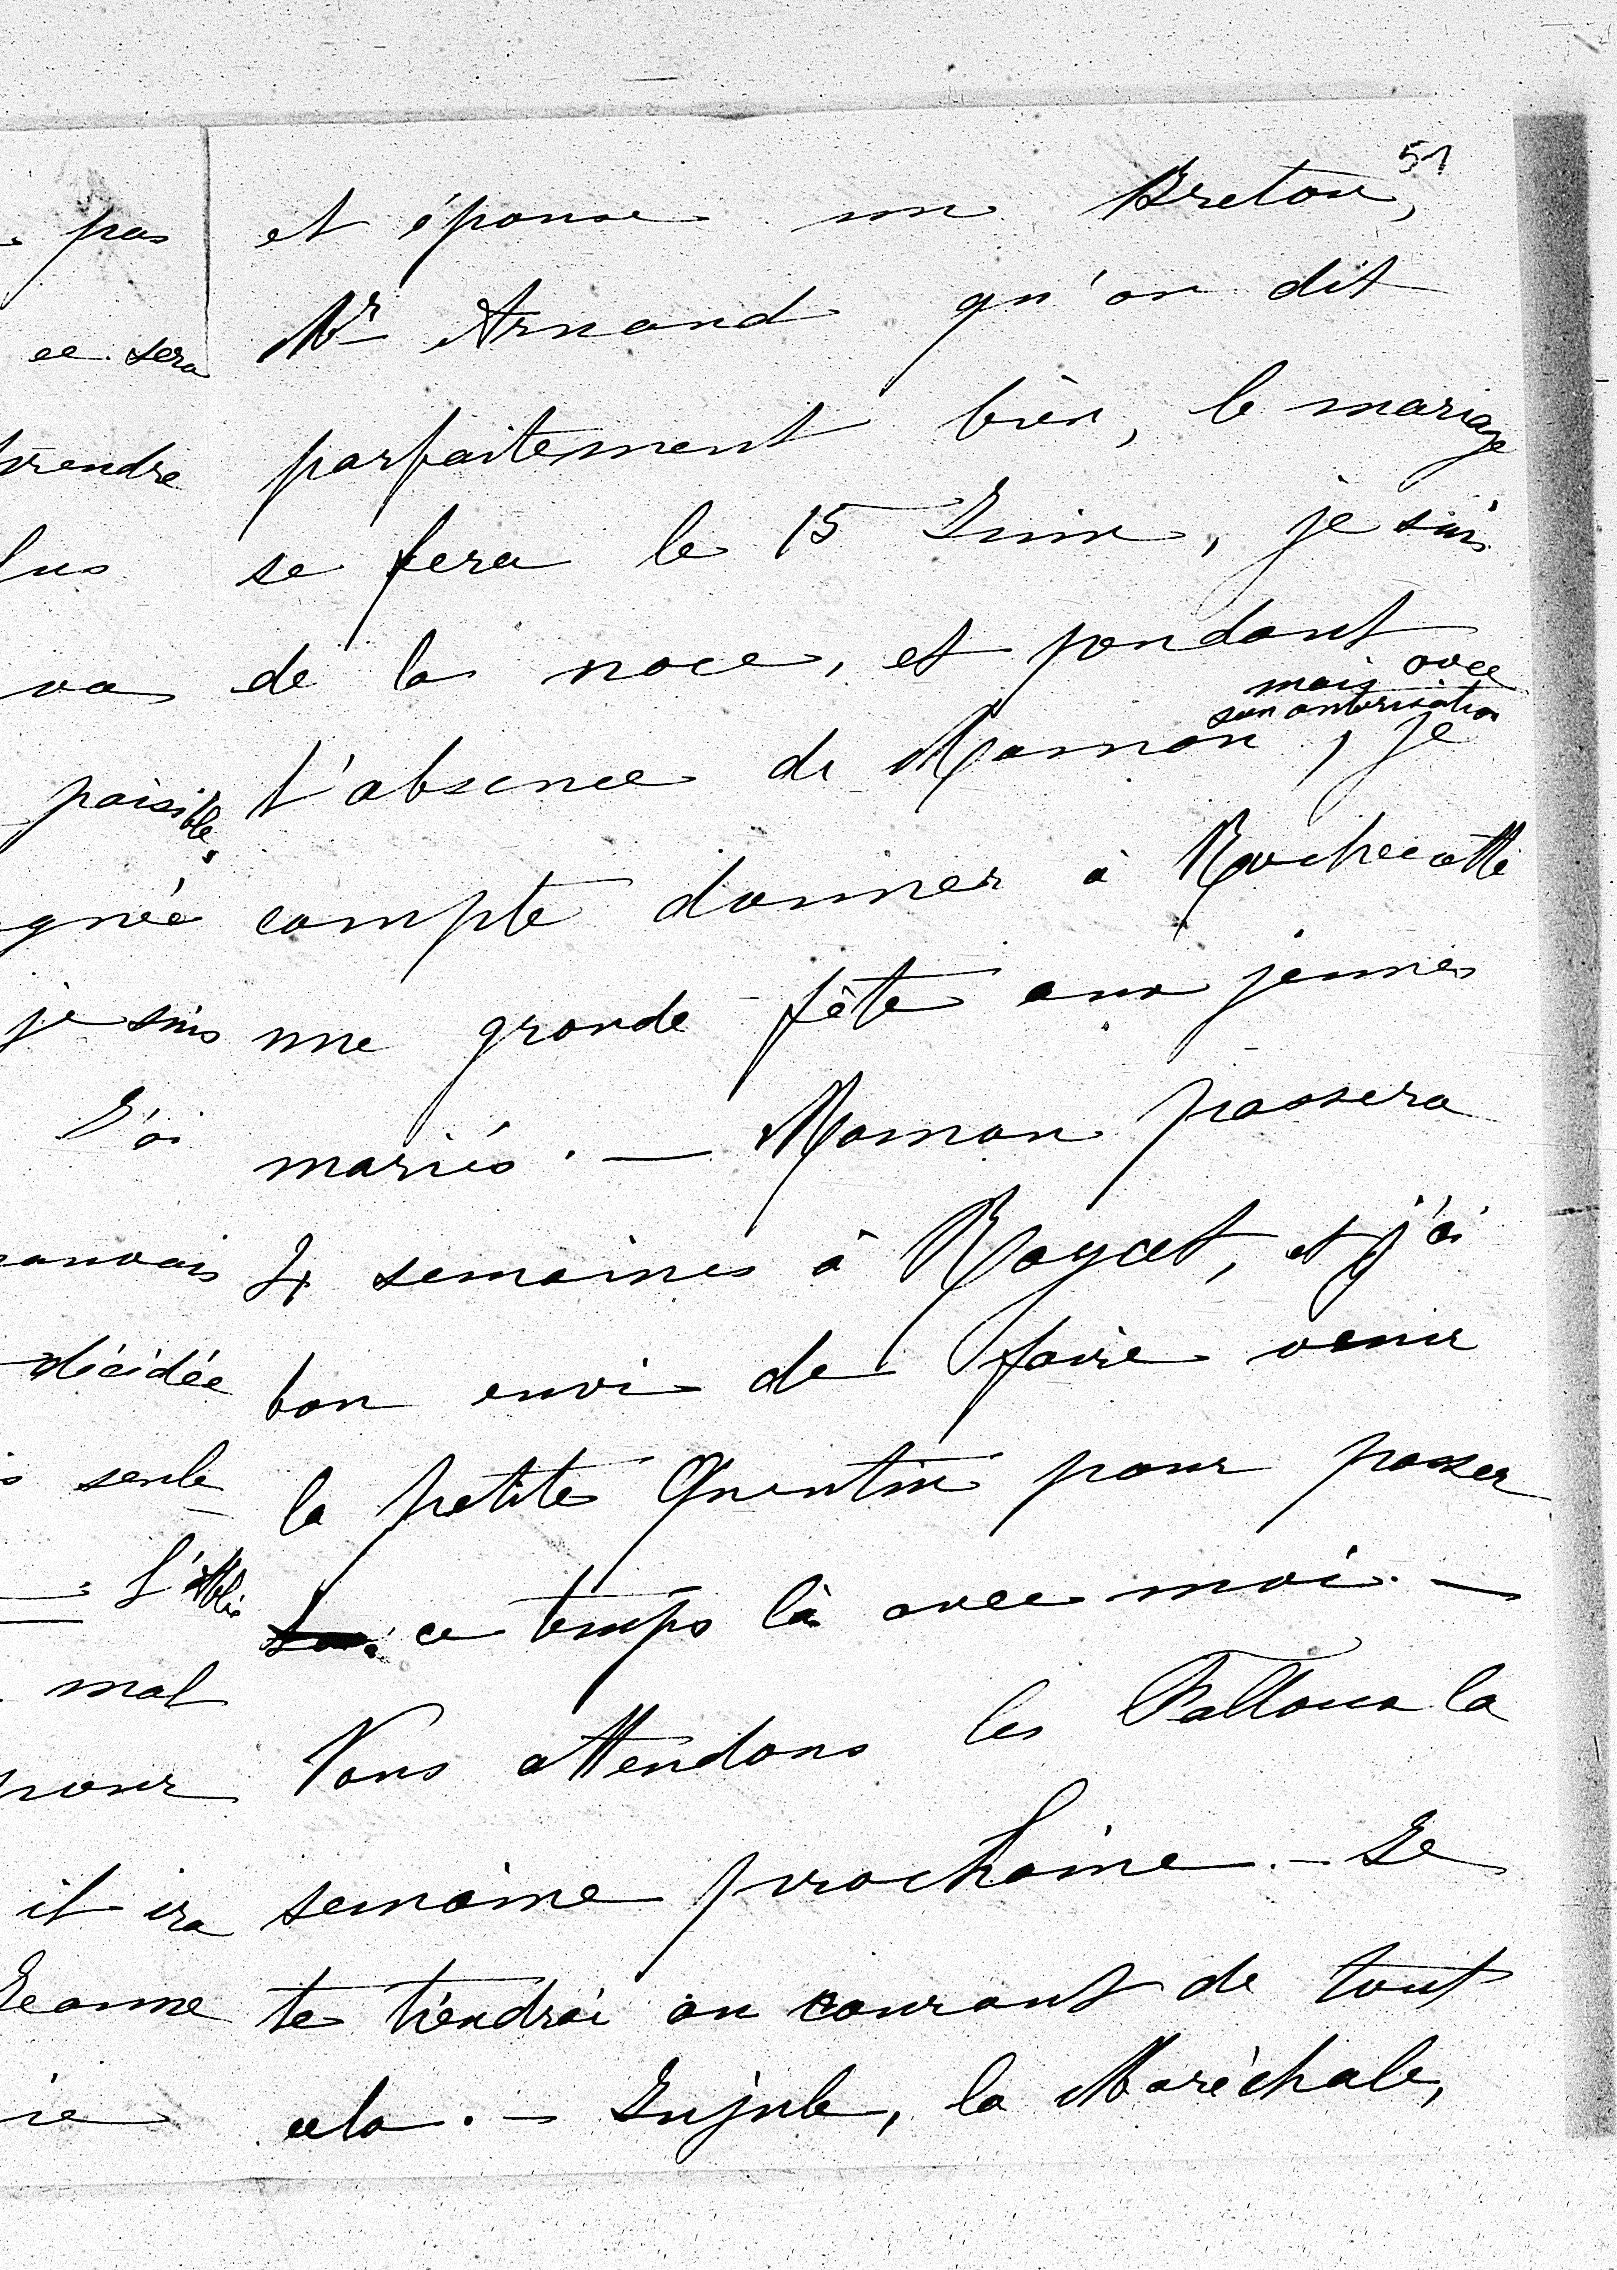 51
et épouse un Breton,
Mr Arnaud qu'on dit
parfaitement bien, le mariage
se fera le 15 Juin, je suis
de la noce, et pendant
mais avec
son autorisation
l'absence de Maman, je
compte donner à Rochecotte
une grande fête aux jeunes
mariés. — Maman passera
4 semaines à Royat, et j'ai
bon envie de faire venir
la petite Quentin pour passer
ce temps là avec moi. —
Nous attendons les Falloux la
semaine prochaine. — Je
te tiendrai au courant de tout
cela. — la Maréchale,
pas
ce sera
rendre
lus
va
paisible,
gnée
je suis
J'ai
auvais
décidée
seule
mal
pour
il ira
Jeanne
ie